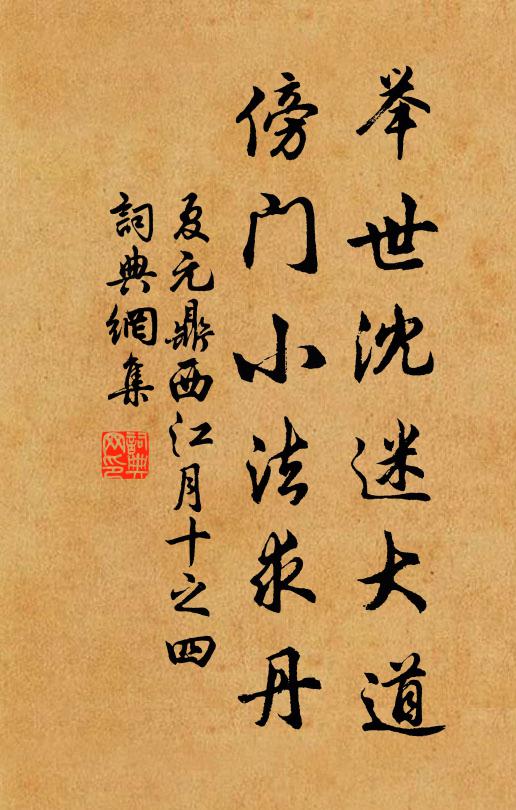 举世沈迷大道
傍门小法求丹
夏元鼎西江月十之四
詞典網集
詞典网印